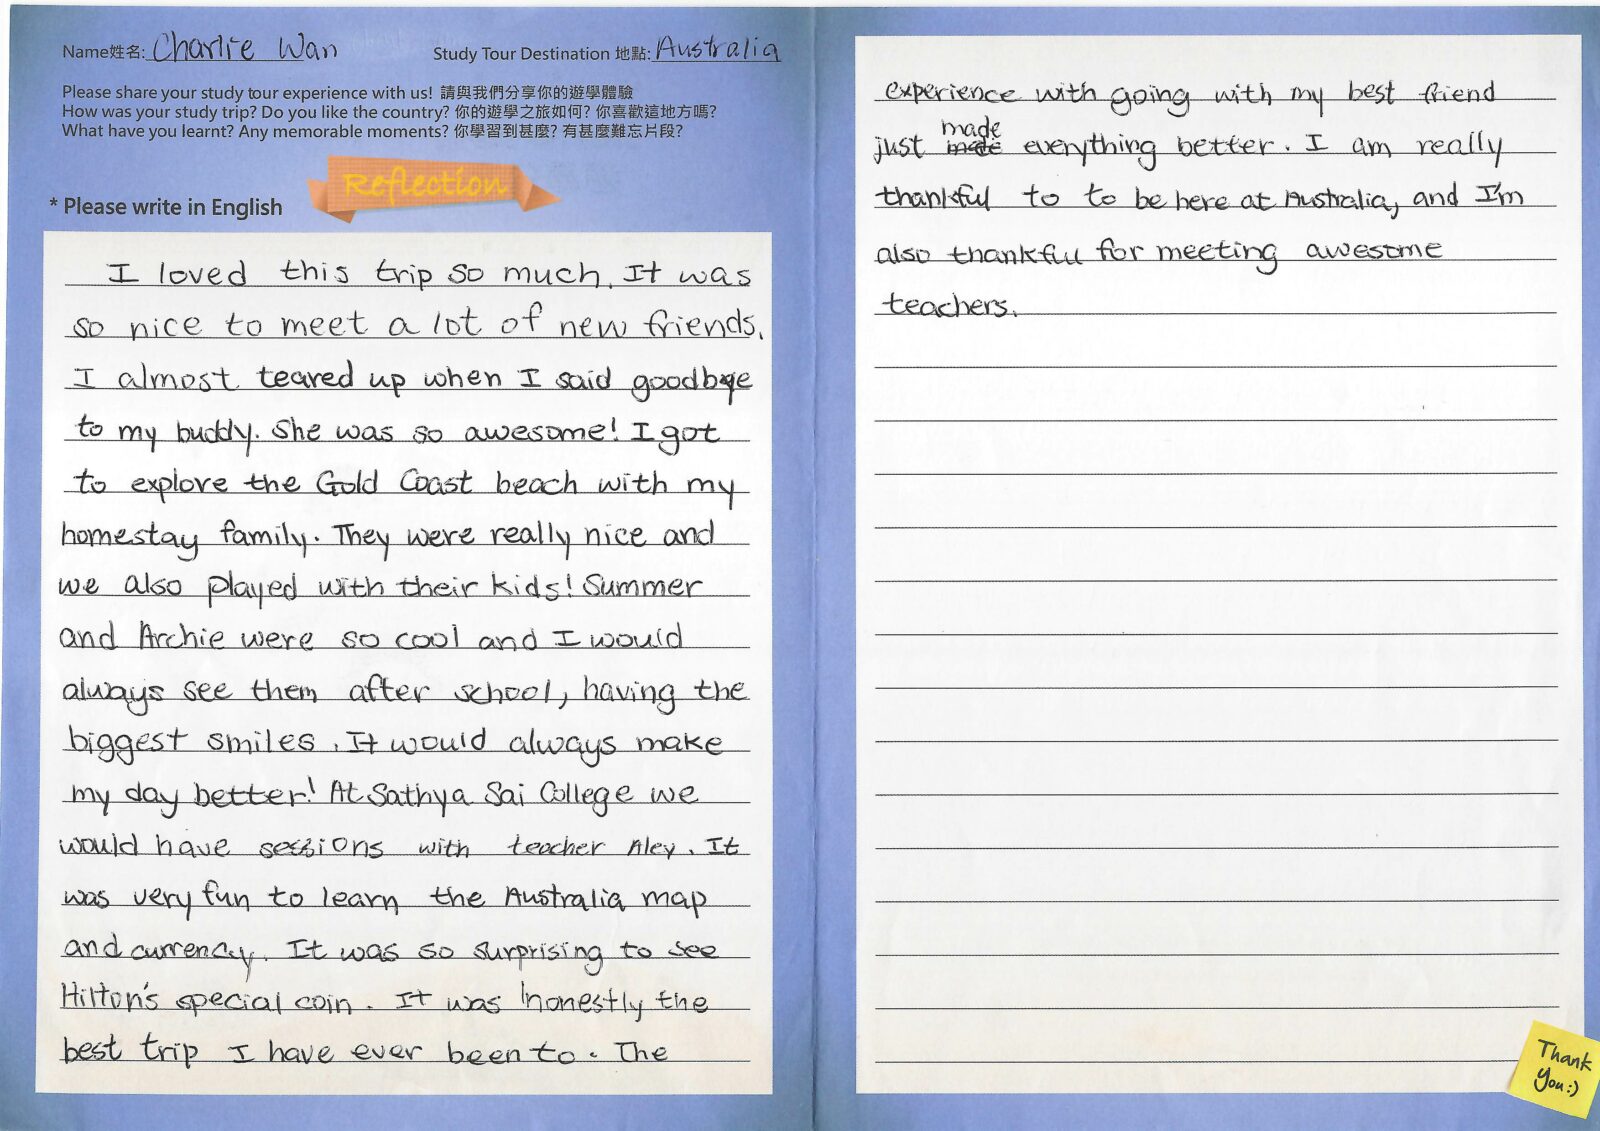 Name姓名: Charlie Wan
Study Tour Destination 地點: Australia
Please share your study tour experience with us! 請與我們分享你的遊學體驗
How was your study trip? Do you like the country? 你的遊學之旅如何? 你喜歡這地方嗎?
What have you learnt? Any memorable moments? 你學習到甚麼? 有甚麼難忘片段?
Reflection
* Please write in English
I loved this trip so much. It was
so nice to meet a lot of new friends.
I almost teared up when I said goodbye
to my buddy. She was so awesome! I got
to explore the Gold Coast beach with my
homestay family. They were really nice and
we also played with their kids! Summer
and Archie were so cool and I would
always see them after school, having the
biggest smiles. It would always make
my day better! At Sathya Sai College we
would have sessions with teacher Aley. It
was very fun to learn the Australia map
and currency. It was so surprising to see
Hilton's special coin. It was honestly the
best trip I have ever been to. The
experience with going with my best friend
just made everything better. I am really
thankful to to be here at Australia, and I'm
also thankful for meeting awesome
teachers.
Thank
you:)